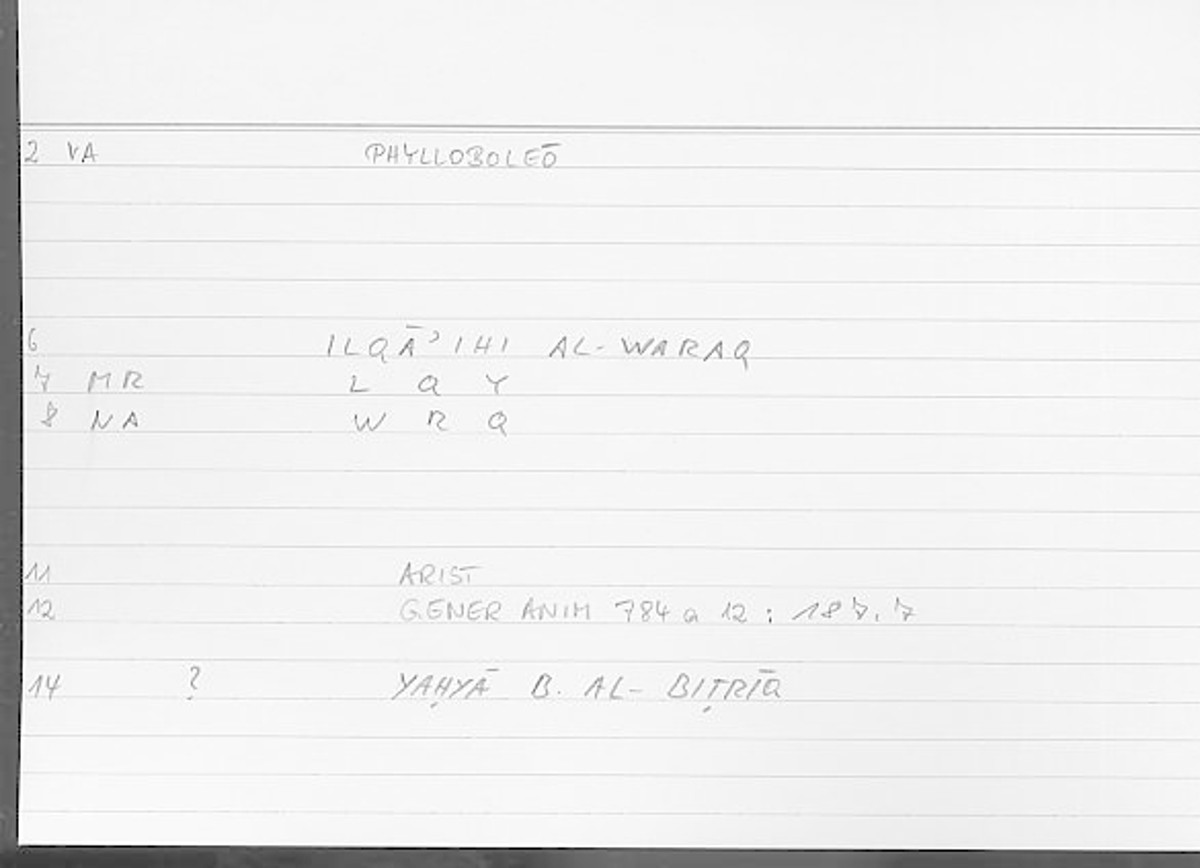 2 VA PHYLLOBOLEŌ
6 ILQĀʾIHI AL-WARAQ
7 MR L Q Y
8 NA W R Q
11 ARIST
12 GENER ANIM 784 a 12 : 187.7
14 ? YAḤYĀ B. AL-BIṬRĪQ